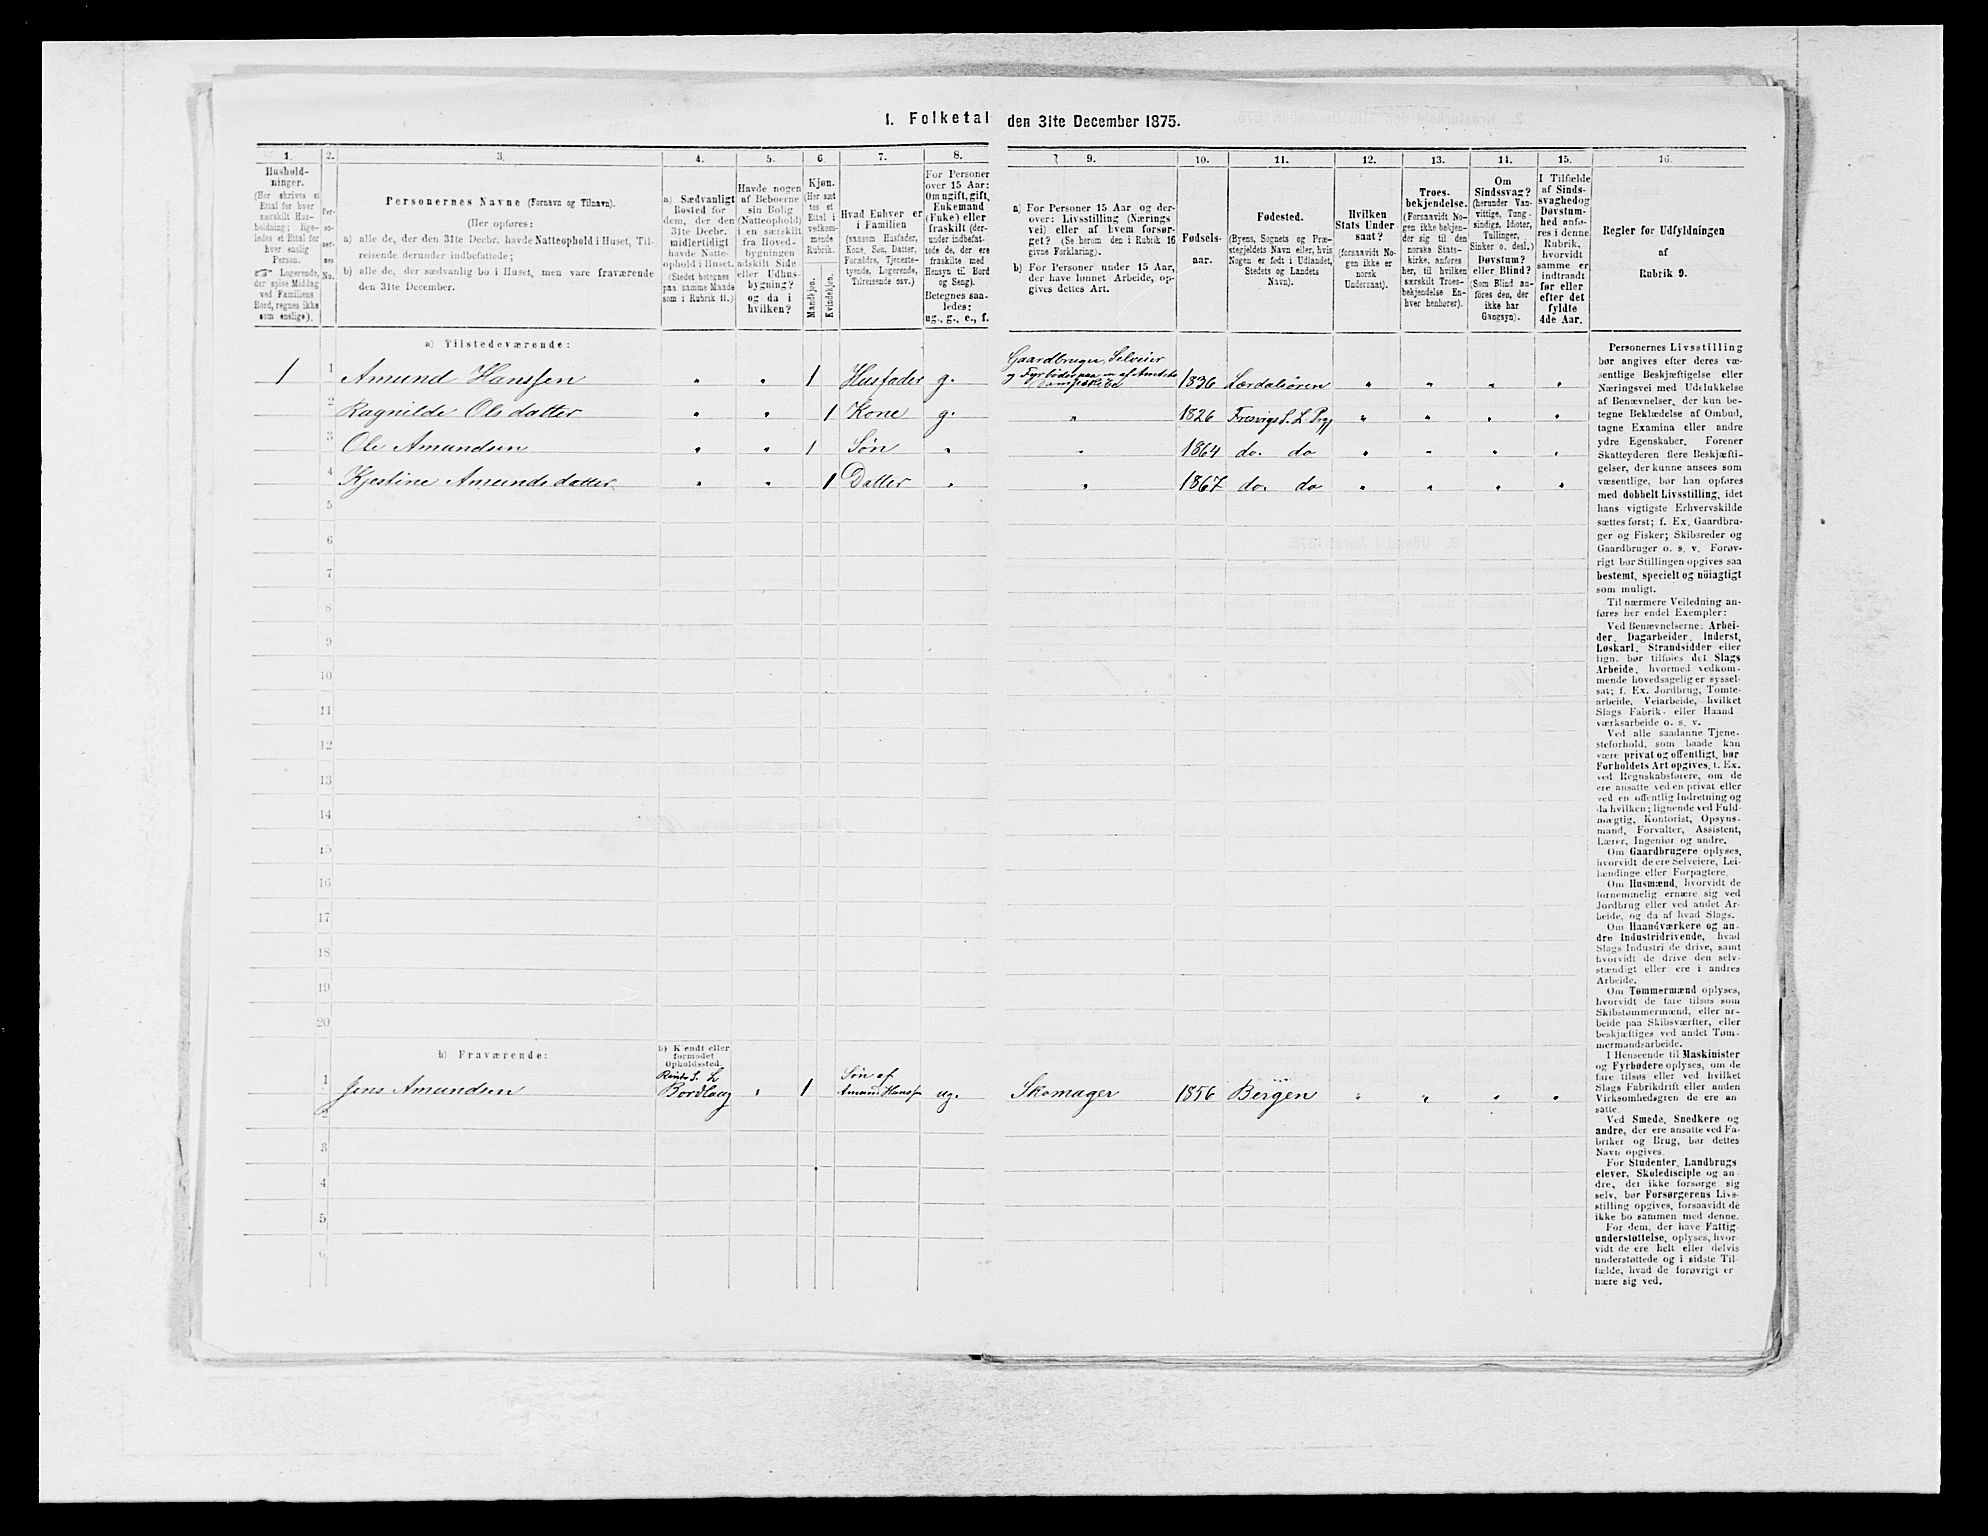 1. Folketal den 31te December 1875.
1. 2. 3. 4. 5. 6. 7. 8. 9. 10. 11. 12. 13. 14. 15. 16.
Hushold-
ninger.
(Her skrives et
Ettal for hver
særskilt Hus-
holdning; lige-
ledes et Ettal for
hver enslig
Person.
☞ Logerende,
der spise Middag
ved Familiens
Bord, regnes ikke
som enslige).
Per-
so-
ner-
nes
No.
Personernes Navne (Fornavn og Tilnavn).
(Her opføres:
a) alle de, der den 31te Decbr. havde Natteophold i Huset, Til-
reisende derunder indbefattede;
b) alle de, der sædvanlig bo i Huset, men vare fraværende
den 31te December.
a) Sædvanligt
Bosted for
dem, der den
31te Decbr.
midlertidigt
havde Natte-
ophold i Huset.
(Stedet betegnes
paa samme Maade
som i Rubrik 11.)
Havde nogen
af Beboerne
sin Bolig
(Natteophold)
i en særskilt
fra Hoved-
bygningen
adskilt Side
eller Udhus-
bygning?
og da i
hvilken?
Kjøn.
(Her sæt
tes et
Ettal i
vedkom-
mende
Rubrik.
Mandkjøn.
Kvindekjøn.
Hvad Enhver er
i Familien
(saasom Husfader,
Kone, Søn, Datter,
Forældre, Tjeneste-
tyende, Logerende,
Tilreisende osv.)
For Personer
over 15 Aar:
Om ugift, gift,
Enkemand
(Enke) eller
fraskilt (der-
under indbefat-
tede de, der ere
fraskilte med
Hensyn til Bord
og Seng).
Betegnes saa-
ledes:
ug., g., e., f.
a) For Personer 15 Aar og der-
over: Livsstilling (Nærings
vei) eller af hvem forsør-
get? (Se herom den i Rubrik 16
givne Forklaring).
b) For Personer under 15 Aar,
der have lønnet Arbeide, op-
gives dettes Art.
Fødsels-
aar.
Fødested.
(Byens, Sognets og Præ-
stegjeldets Navn eller, hvis
Nogen er født i Udlandet,
Stedets og Landets
Navn).
Hvilken
Stats Under
saat?
(forsaavidt No-
gen ikke er
norsk
Undersaat).
Troes-
bekjendelse.
(Forsaavidt No-
gen ikke bekjen-
der sig til den
norske Stats-
kirke, anføres
her, til hvilken
særskilt Troes-
bekjendelse En-
hver henhører).
Om
Sindssvag?
(herunder Van-
vittige, Tung-
sindige, Idioter,
Tullinger,
Sinker o. desl.)
Døvstum?
eller Blind?
(Som Blind an-
føres den, der
ikke har
Gangsyn).
I Tilfælde
af Sinds-
svaghed og
Døvstum-
hed anfø-
res i denne
Rubrik,
hvorvidt
samme er
indtraadt
før eller
efter det
fyldte
4de Aar.
Regler for Udfyldningen
af
Rubrik 9.
a) Tilstedeværende:
Gaardbruger, Selveier
1 1 Amund Hanssen " " 1 Husfader g. 1836 Lærdalsören " " " "
2 Ragnilde Olsdatter " " 1 Kone g. " 1826 Fresvigs S. L. Prgj " " " "
3 Ole Amundsen " " 1 Søn " " 1864 do. do " " " "
4 Kjestine Amundsdatter " " 1 Datter " " 1867 do. do " " " "
5
6
7
8
9
10
11
12
13
14
15
16
17
18
19
20
b) Fraværende:
b) Kjendt eller
formodet
Opholdssted.
1 Jens Amundsen Bordlaug " 1 Søn af
Amund Hanss. ug. Skomager 1856 Bergen " " " "
2
3
4
5
6
Personernes Livsstilling
bør angives efter deres væ-
sentlige Beskjæftigelse eller
Næringsvei med Udelukkelse
af Benævnelser, der kun be-
tegne Beklædelse af Ombud,
tagne Examina eller andre
ydre Egenskaber. Forener
Skatteyderen flere Beskjæfti-
gelser, der kunne ansees som
væsentlige, bør han opføres
med dobbelt Livsstilling, idet
hans vigtigste Erhvervskilde
sættes først; f. Ex. Gaardbru-
ger og Fisker; Skibsreder og
Gaardbruger o. s. v. Forøv-
rigt bør Stillingen opgives saa
bestemt, specielt og nöiagtigt
som muligt.
Til nærmere Veiledning an-
føres her endel Exempler:
Ved Benævnelserne: Arbei-
der, Dagarbeider, Inderst,
Løskarl, Strandsidder eller
lign. bør tilføies det Slags
Arbeide, hvormed vedkom-
mende hovedsagelig er syssel-
sat; f. Ex. Jordbrug, Tomte-
arbeide, Veiarbeide, hvilket
Slags Fabrik- eller Haand
værksarbeide o. s. v.
Ved alle saadanne Tjene-
steforhold, som baade kan
være privat og offentligt, bør
Forholdets Art opgives, f. Ex.
ved Regnskabsførere, om de
ere ansatte ved en privat eller
ved en offentlig Indretning og
da hvilken; lignende ved Fuld-
mægtig, Kontorist, Opsyns-
mand, Forvalter, Assistent,
Lærer, Ingeniør og andre.
Om Gaardbrugere oplyses,
hvorvidt de ere Selveiere, Lei-
lændinge eller Forpagtere.
Om Husmænd, hvorvidt de
fornemmelig ernære sig ved
Jordbrug eller ved andet Ar-
beide, og da af hvad Slags.
Om Haandværkere og an-
dre Industridrivende, hvad
Slags Industri de drive, samt
hvorvidt de drive den selv-
stændigt eller ere i andres
Arbeide.
Om Tømmermænd oplyses,
hvorvidt de fare tilsøs som
Skibstømmermænd, eller ar-
beide paa Skibsværfter, eller
beskjæftiges ved andet Tøm-
mermandsarbeide.
I Henseende til Maskinister
og Fyrbødere oplyses, om de
fare tilsøs eller ved hvilket
Slags Fabrikdrift eller anden
Virksomhedsgren de ere an-
satte.
Ved Smede, Snedkere og
andre, der ere ansatte ved Fa-
briker og Brug, bør dettes
Navn opgives.
For Studenter, Landbrugs
elever, Skoledisciple og an-
dre, der ikke forsørge sig
selv, bør Forsørgerens Livs-
stilling opgives, forsaavidt de
ikke bo sammen med denne.
For dem, der have Fattig-
understøttelse, oplyses, hvor-
vidt de ere helt eller delvis
understøttede og i sidste Til-
fælde, hvad de forøvrigt er
nære sig ved.